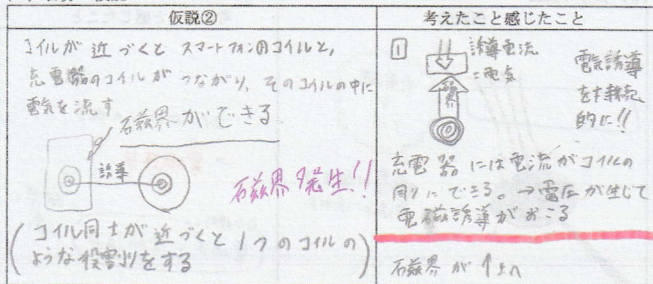 仮説②
コイルが近づくとスマートフォン用コイルと,
充電器のコイルがつながり, そのコイルの中に
電気を流す
磁界ができる
誘導
磁界発生!!
(コイル同士が近づくと1つのコイルの
ような役割りをする)
考えたこと感じたこと
1
誘導電流
=電気
電気誘導
を継続
的に!!
充電器には電流がコイルの
周りにできる。→電圧が生じて
電磁誘導がおこる
磁界が